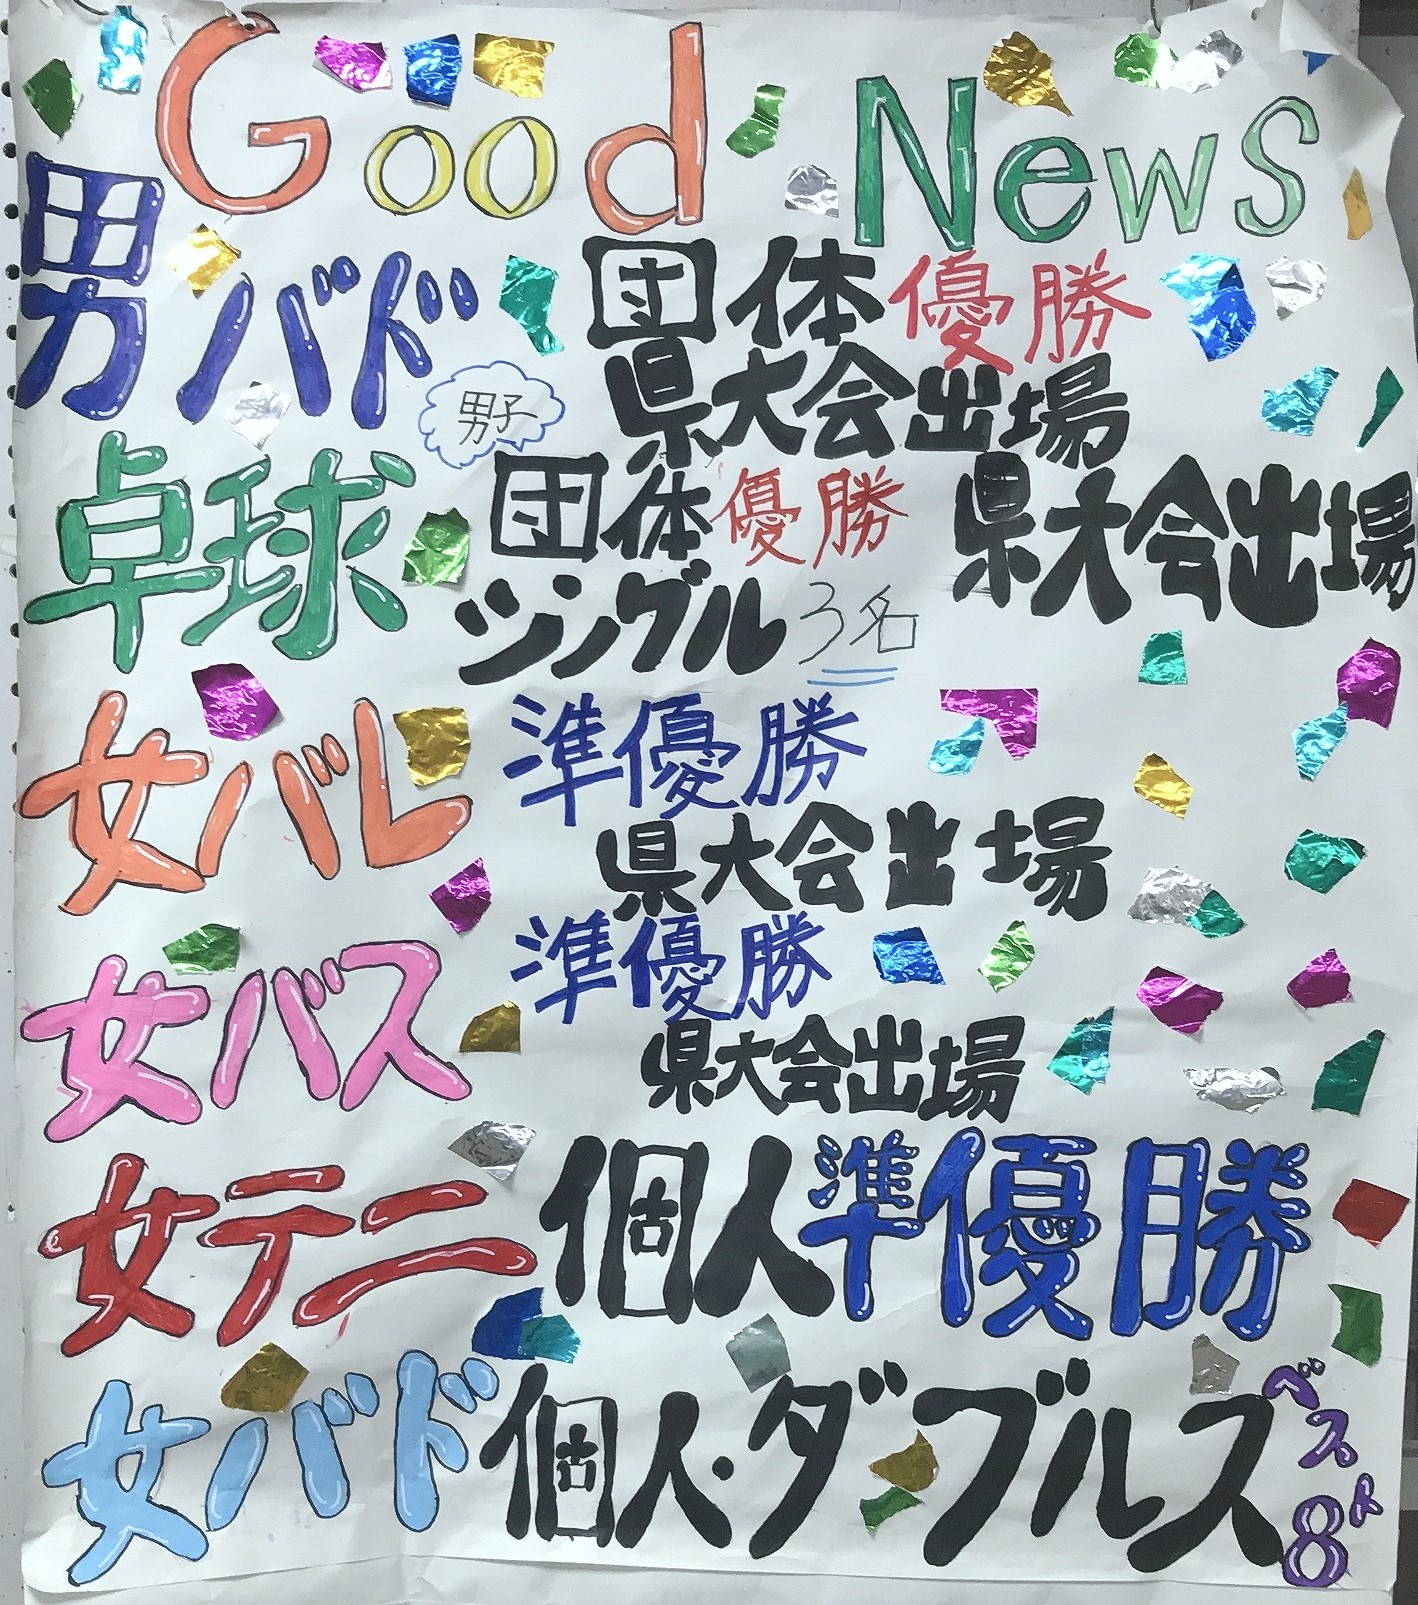 Good News
男バド 団体優勝
県大会出場
卓球 男子 団体優勝 県大会出場
シングル 3名
女バレ 準優勝
県大会出場
女バス 準優勝
県大会出場
女テニ 個人準優勝
女バド 個人・ダブルス ベスト8